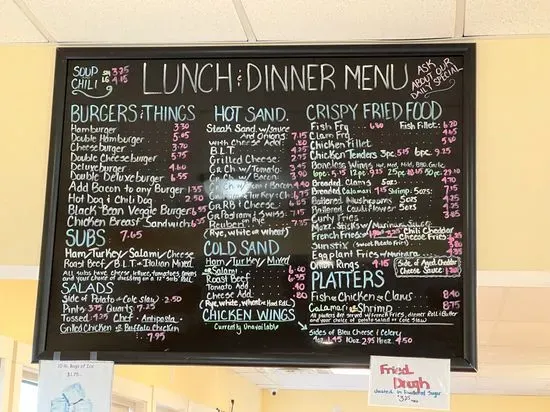 SOUP SM 3.25
CHILI LG 4.15
LUNCH & DINNER MENU
ASK ABOUT OUR DAILY SPECIAL
BURGERS & THINGS
Hamburger 3.30
Double Hamburger 5.15
Cheeseburger 3.70
Double Cheeseburger 5.75
Deluxeburger 4.60
Double Deluxeburger 6.55
Add Bacon to any Burger 1.35
Hot Dog & Chili Dog 2.50
Black Bean Veggie Burger 6.55
Chicken Breast Sandwich 6.55
SUBS 7.65
Ham/Turkey/Salami/Cheese
Roast Beef/B.L.T. & Italian Mixed
All subs have cheese, lettuce, tomatoes, onions
and your choice of dressing on a 12" Sub Roll
SALADS
Side of Potato & Cole Slaw 2.50
Pints 3.75 Quarts 7.25
Tossed 4.25 Chef - Antipasto
Grilled Chicken & Buffalo Chicken
7.95
HOT SAND.
Steak Sand. w/Sauce
and Onions 7.15
with Cheese Add .80
B.L.T. 4.25
Grilled Cheese 2.75
Gr. Ch w/Tomato
Gr. Ch w/Bacon 3.90
Gr. Ch w/Tomato & Bacon 4.40
Gr. Ham/Turkey & Ch
Gr. R.B. & Cheese 6.65
Gr. Pastrami & Swiss 7.15
Reuben
(Rye, white or wheat)
COLD SAND
Ham/Turkey/Mixed
or Salami 6.00
Roast Beef 6.35
Tomato 2.40
Add Cheese .80
(Rye, white, wheat & Hard Roll)
CHICKEN WINGS
Currently Unavailable
CRISPY FRIED FOOD
Fish Fry 6.80 Fish Fillet 6.20
Clam Fry 4.65
Chicken Fillet 5.60
Chicken Tenders 3pc. 5.15 6pc. 9.25
Boneless Wings Hot, Med, Mild, BBQ, Garlic
6pc 5.15 12pc 9.25 25pc 50pc
Breaded Clams 5oz
Breaded Calamari 7.15 Shrimp 5oz 7.15
Battered Mushrooms 4.25
Battered Cauliflower 4.25
Curly Fries
Mozz. Sticks w/Marinara Sauce
French Fries Chili Cheddar
Cheese Fries
Sunstix (Sweet Potato Fries)
Eggplant Fries w/Marinara
Onion Rings 4.15
Side of Aged Cheddar
Cheese Sauce 1.30
PLATTERS
Fish & Chicken & Clams 8.40
Calamari & Shrimp 8.75
All platters are served w/french fries, dinner Roll & Butter
and your choice of potato salad or cole slaw
Sides of Bleu Cheese & Celery
4oz 1.45 10oz 2.95 16oz 4.50
10 lb. Bags of Ice
$1.75
Fried Dough
dusted in Powdered Sugar